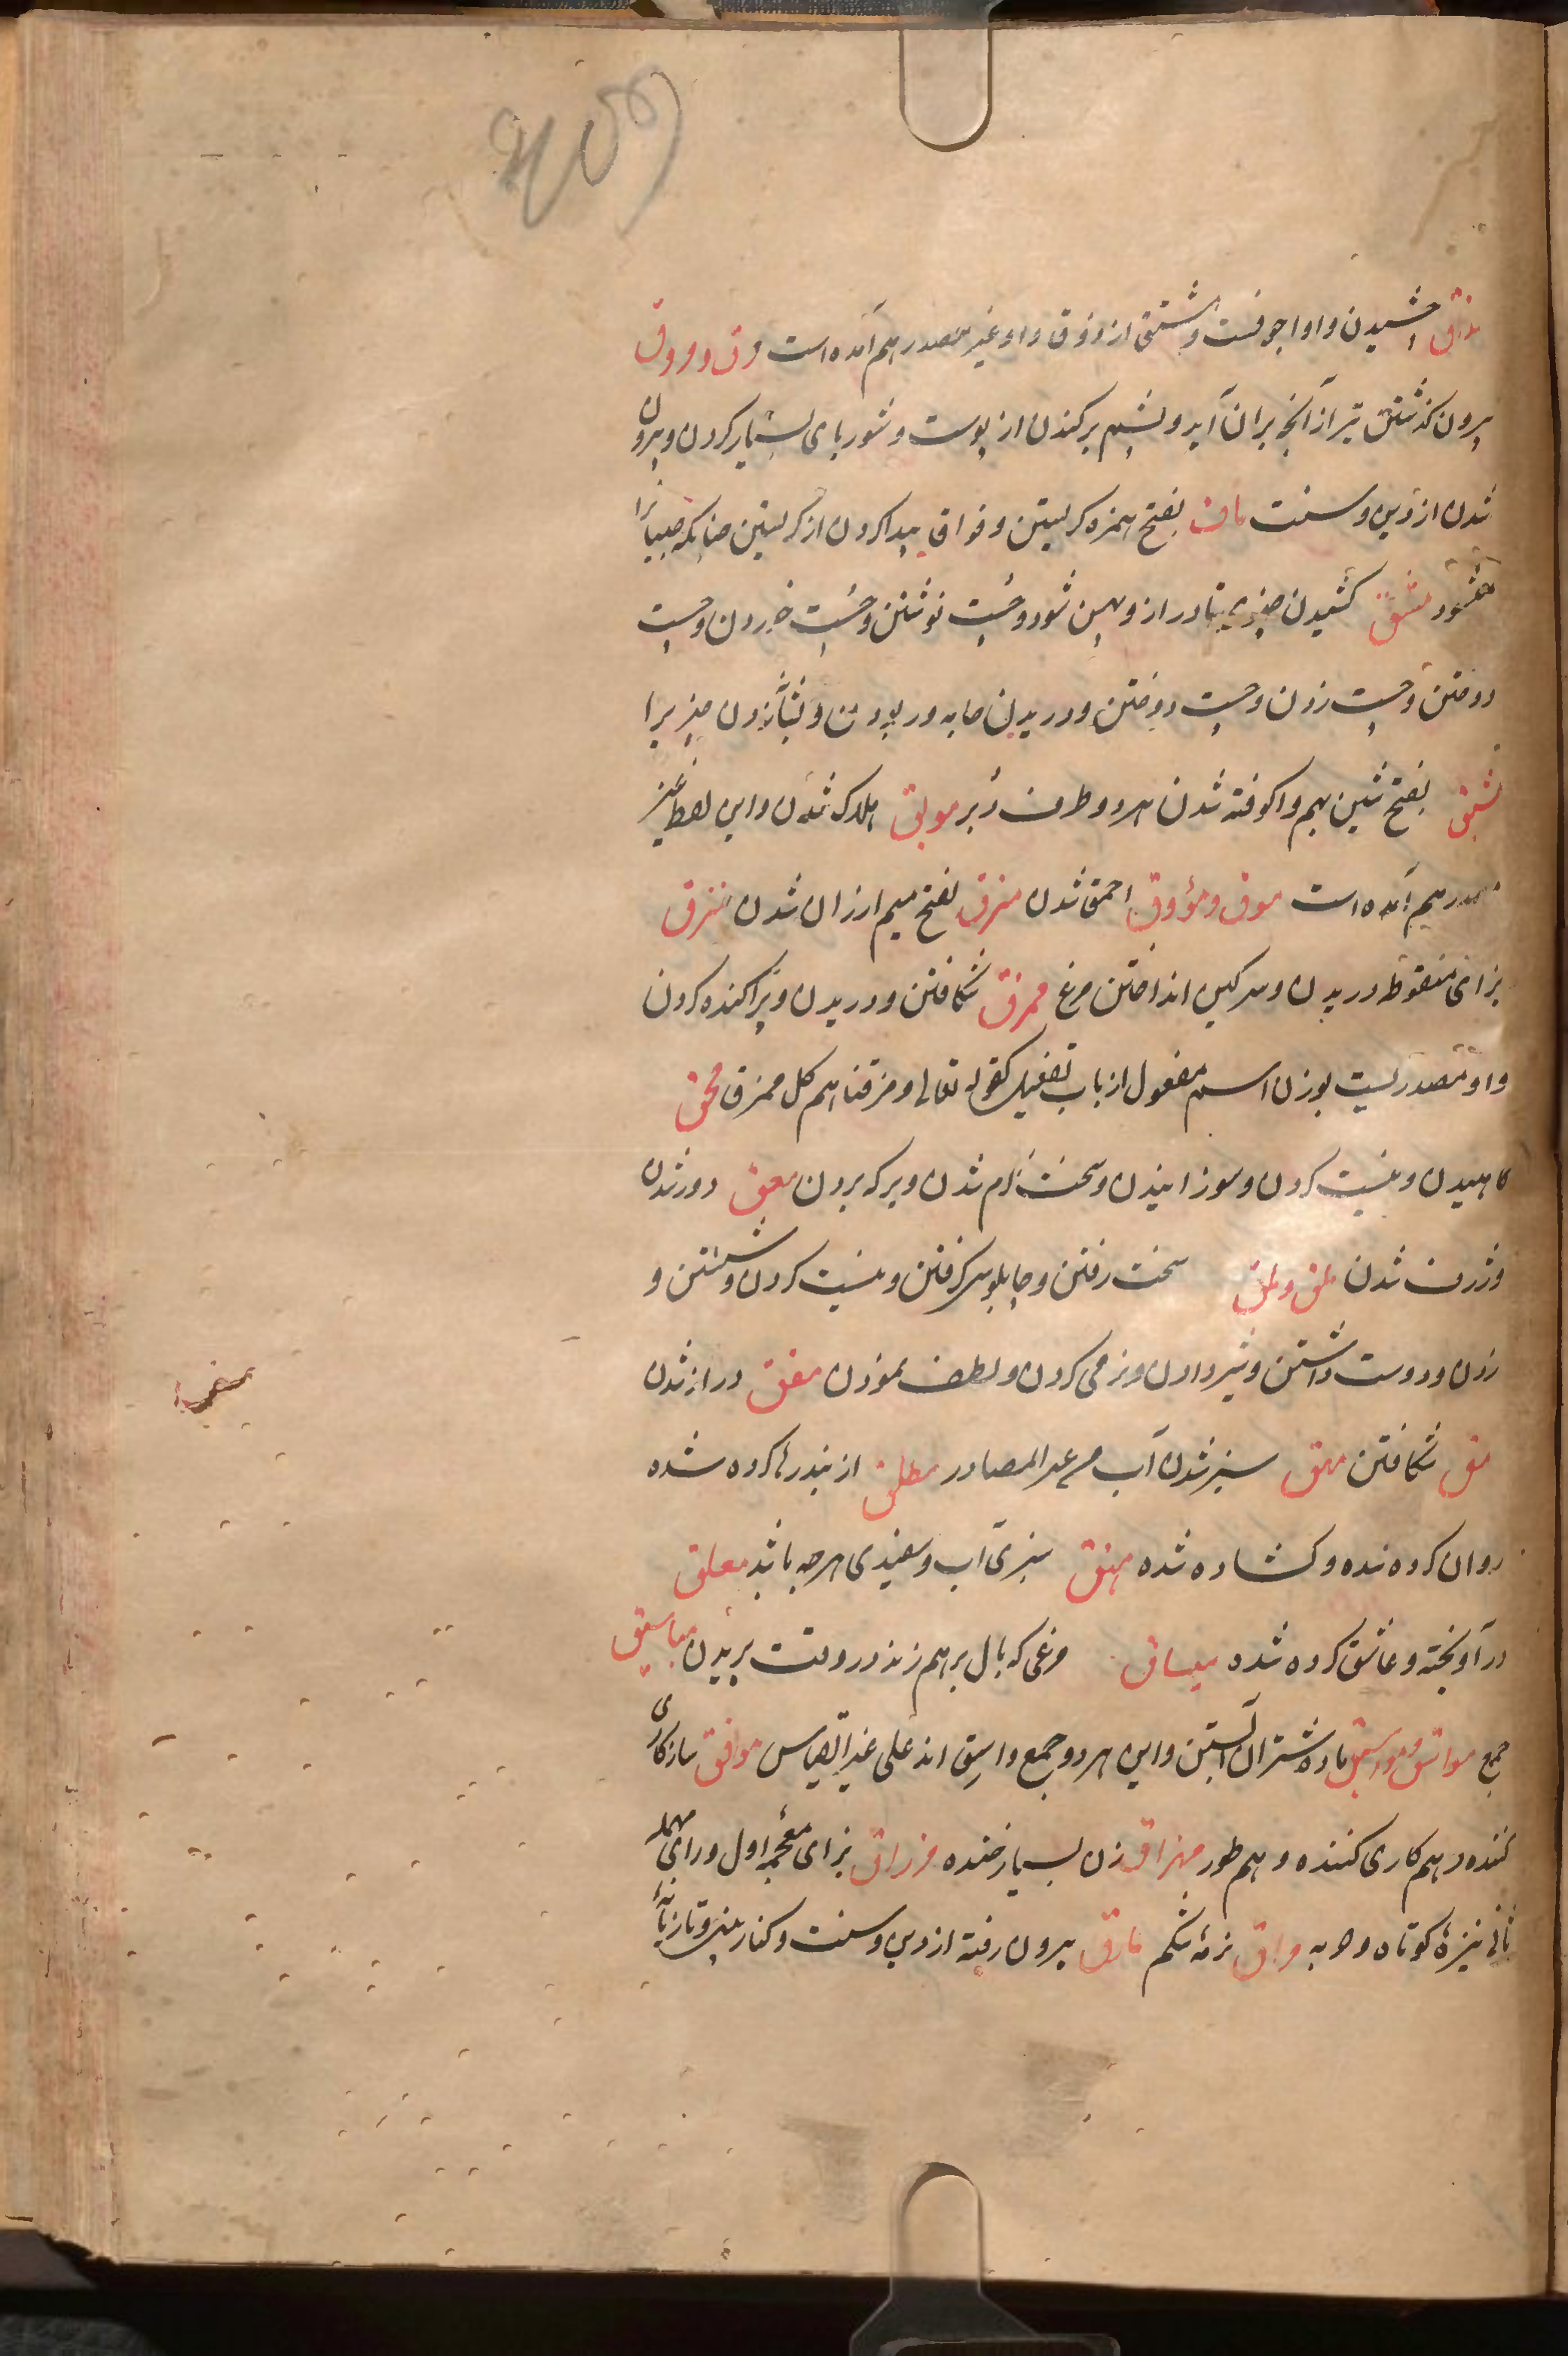 مذاق چشیدن و او اجوفست و مشتق از ذوق و او غیر مصدر هم آمده است مرق و مروق
بیرون گذشتن تیر از آنچه بران آید و پشم برکندن از پوست و شوربای بسیار کردن و بیرون
شدن از دین و سنت ماق بفتح همزه گریستن و فواق پیدا کردن از گریستن چنانکه صبیانرا
میشود مشق کشیدن چیزی تا دراز و پهن شود و چست نوشتن و چست خوردن و چست
دوختن و چست زدن و چست دوختن و دریدن جامه و ربودن و بشتاب زدن چیزیرا
مشق بفتح شین بهم واکوفته شدن هر دو طرف دبر موبق هلاک شدن و این لفظ غیر
مصدر هم آمده است موق و مؤوق احمق شدن مزق بفتح میم ارزان شدن مزق
بزای منقوطه دریدن و سرگین انداختن مرغ ممزق شکافتن و دریدن و پراکنده کردن
و او مصدریست بوزن اسم مفعول از باب تفعیل کقوله تعالی و مزقناهم کل ممزق محق
کاهیدن و نیست کردن و سوزانیدن و سخت گرم شدن و برکه بردن معق دور شدن
و ژرف شدن ملق و ملق سخت رفتن و چاپلوس گرفتن و نیست کردن و شستن و
زدن و دوست داشتن و شیر دادن و نرمی کردن و لطف نمودن مقق دراز شدن
مق شکافتن مهق سبز شدن آب من غیر المصادر مطلق از بند رها کرده شده
روان کرده شده و کشاده شده مهق سبزی آب و سفیدی هر چه باشد معلق
در آویخته و عاشق کرده شده میساق مرغی که بال برهم زند در وقت پریدن میاسیق
جمع مواسق و مواسیق ماده شتران آبستن و این هر دو جمع واسق اند علی غیر القیاس موافق سازکاری
کننده و هم کاری کننده و هم طور مهزاق زن بسیار خنده مزراق بزای معجمه اول و رای مهمله
ثانی نیزهٔ کوتاه و حربه مراق نرمهٔ شکم مارق بیرون رفته از دین و سنت و کنار بینی و تازیانه